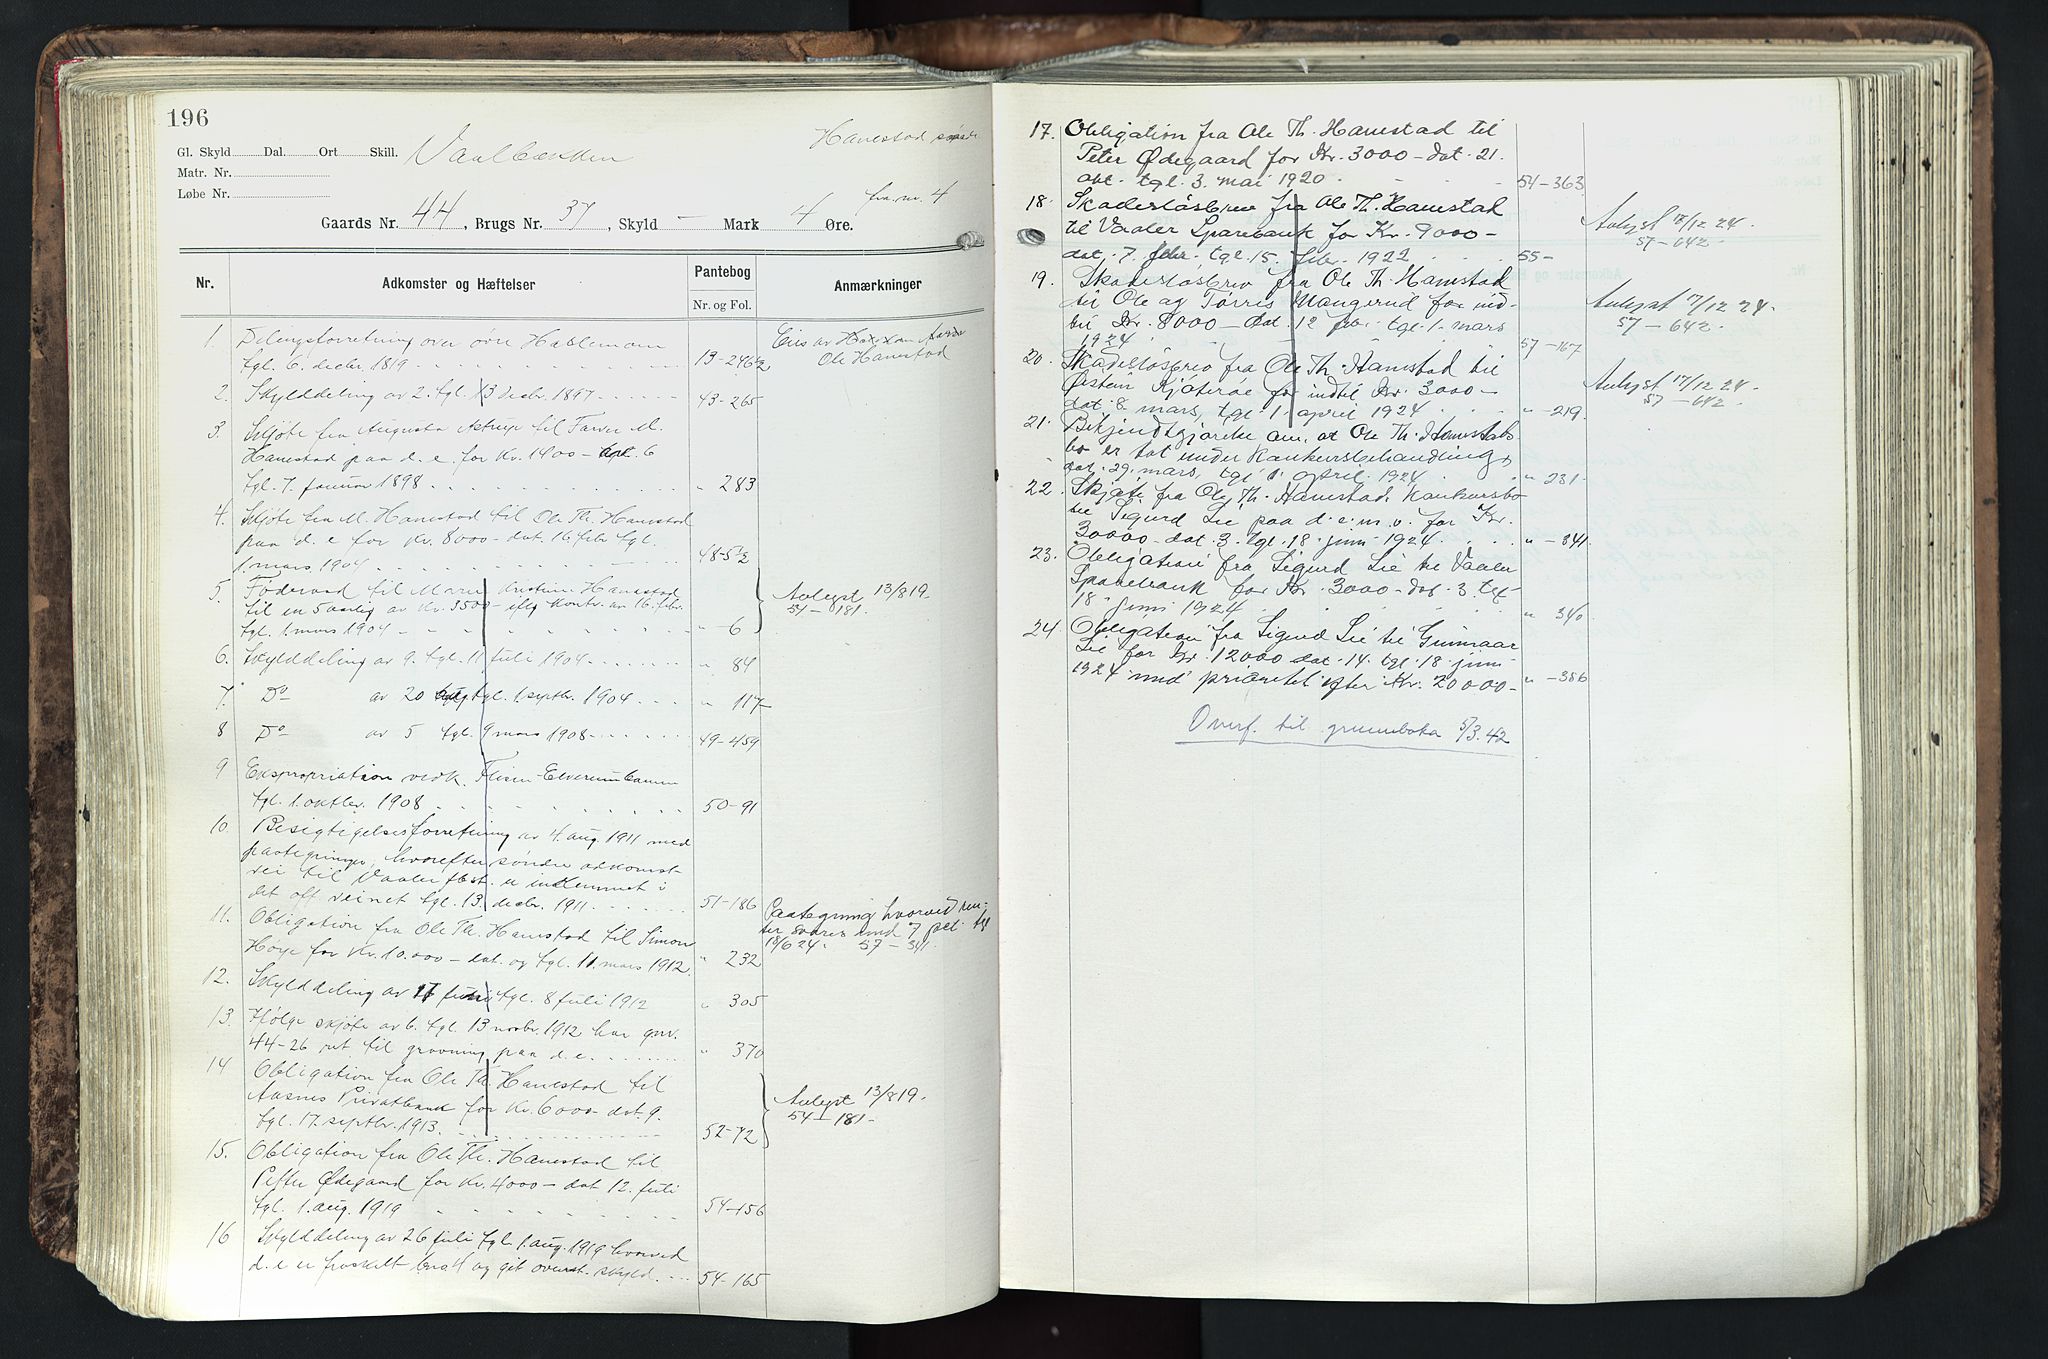 196
Hanestad søndre
Gl. Skyld Dal. Ort Skill. Vaalbakken
Matr. Nr.
Løbe Nr.
fra nr. 4
Gaards Nr. 44, Brugs Nr. 37, Skyld — Mark 4 Øre.
Nr. Adkomster og Hæftelser Pantebog Anmærkninger
Nr. og Fol.
1. Delingsforretning over øvre Haslemoen
tgl. 6. decbr. 1819 13-246½
Eies av
Ole Hanestad
2. Skylddeling av 2. tgl. 13 decbr. 1897 43-265
3. Skjøte fra Augusta Astrup til Tarver M.
Hanestad paa d. e. for Kr. 1400 — dat. 6
tgl. 7. januar 1898 " 283
4. Skjøte fra M. Hanestad til Ole Th. Hanestad
paa d. e for Kr. 8000 – dat. 16. febr. tgl.
1. mars 1904 48-5½
5. Føderaad til Maren Kristine Hanestad
til en 5 aarlig av Kr. 3500 – eflg. kontr. av 16. febr.
tgl. 1. mars 1904 " -6
Avlyst 13/8 19.
54 – 181.
6. Skylddeling av 9. tgl. 11 juli 1904 " 84
7. Do av 20 aug. tgl. 1. septbr. 1904 " 117
8 Do av 5 tgl. 9 mars 1908 49-459
9 Ekspropriation vedk. Flisen-Elverumbanen
tgl. 1. oktbr. 1908 50-91
10. Besigtigelsesforretning av 4. aug. 1911 med
paategninger, hvorefter søndre adkomst-
vei til Vaaler st. er indlemmet i
det off veinet tgl. 13. decbr. 1911 51-186
11. Obligation fra Ole Th. Hanestad til Simon
Hoye for Kr. 10.000 – dat. og tgl. 11. mars 1912. " 232
Paategning hvorved ren-
ter svares med 7 pct. tgl
18/6 24. 57 – 341.
12. Skylddeling av 17 juni tgl. 8 juli 1912 " 305
13. Ifølge skjøte av 6. tgl. 13 novbr. 1912 har gnr.
44-26 ret til gravning paa d. e. " 370
14 Obligation fra Ole Th. Hanestad til
Aasnes Privatbank for Kr. 6000 – dat. 9.
tgl. 17. septbr. 1913. 52-72
Avlyst 13/8 19.
54 – 181 –
15. Obligation fra Ole Th. Hanestad til
Petter Ødegaard for Kr. 4000 – dat 12. juli
tgl. 1. aug. 1919 54-156
16 Skylddeling av 26 juli tgl. 1. aug. 1919 hvorved
d. e er fraskilt bnr. 4 og git ovenst. skyld. 54-165
17. Obligation fra Ole Th. Hanestad til
Peter Ødegaard for Kr. 3000 – dat. 21.
tgl. 3. mai 1920 54-363
18. Skadesløsbrev fra Ole Th. Hanestad
til Vaaler Sparebank for Kr. 9000 –
dat. 7. febr. tgl. 15. febr. 1922 55-
Avlyst 17/12 24.
57 – 642.
19. Skadesløsbrev fra Ole Th. Hanestad
til Ole og Tørris Mangerud for ind-
til Kr. 8000 – dat. 12 febr. tgl. 1. mars
1924 57-167
Avlyst 17/12 24.
57 – 642.
20. Skadesløsbrev fra Ole Th. Hanestad til
Østein Kjøterøe for indtil Kr. 3000 –
dat. 8. mars, tgl. 1. april 1924 " -219.
Avlyst 17/12 24.
57 – 642.
21. Bekjendtgjørelse om, at Ole Th. Hanestads
bo er tat under konkursbehandling,
dat. 29. mars, tgl. 1. april 1924 " 231.
22. Skjøte fra Ole Th. Hanestads konkursbo
til Sigurd Lie paa d. e. m. v. for Kr.
30000 – dat. 3. tgl. 18. juni 1924 " -341.
23. Obligation fra Sigurd Lie til Vaaler
Sparebank for Kr. 3000 – dat. 3. tgl.
18. juni 1924 " 340
24. Obligation fra Sigurd Lie til Gunnaar
Lie for Kr. 12000 dat. 14. tgl. 18. juni
1924 med prioritet efter Kr. 20000 – " -386
Overf. til grunnboka 5/3.42